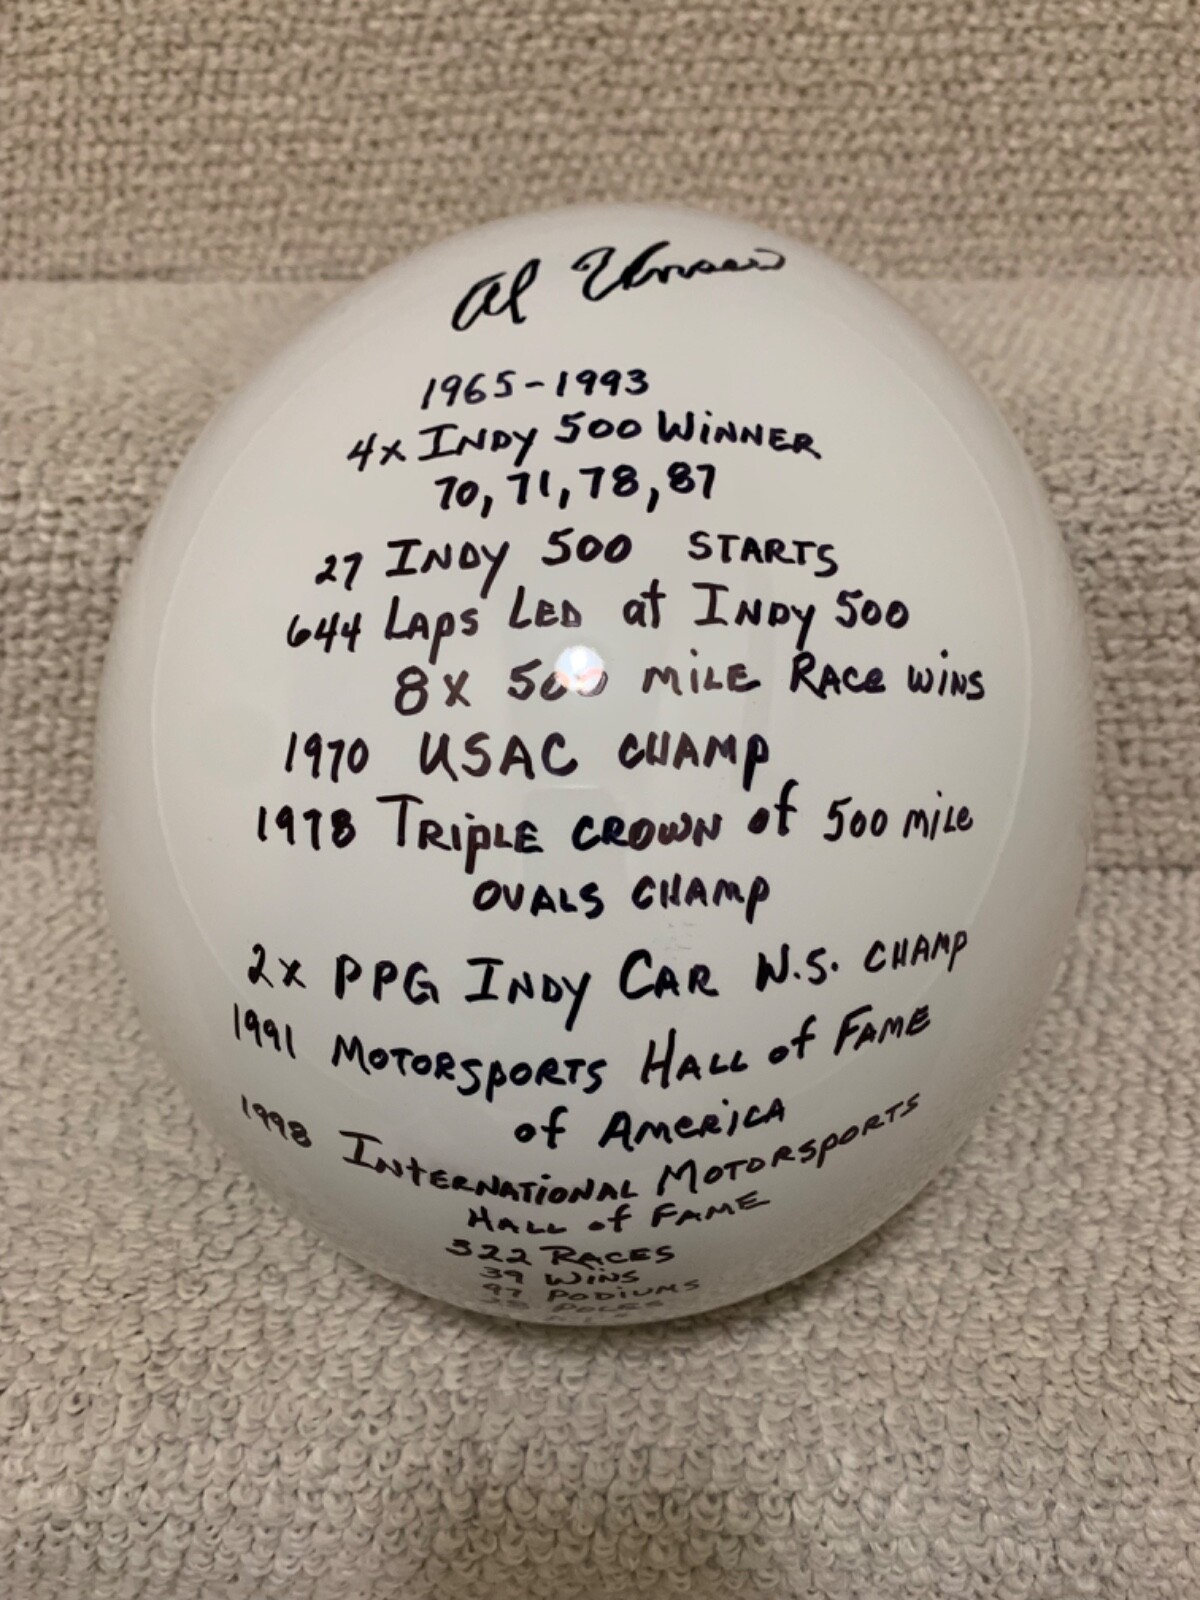 Al Unser
1965-1993
4x INDY 500 WINNER
70, 71, 78, 87
27 INDY 500 STARTS
644 LAPS LED at INDY 500
8X 500 MILE RACE WINS
1970 USAC CHAMP
1978 TRIPLE CROWN of 500 MILE
OVALS CHAMP
2x PPG INDY CAR W.S. CHAMP
1991 MOTORSPORTS HALL of FAME
of AMERICA
1998 INTERNATIONAL MOTORSPORTS
HALL of FAME
322 RACES
39 WINS
97 PODIUMS
POLES